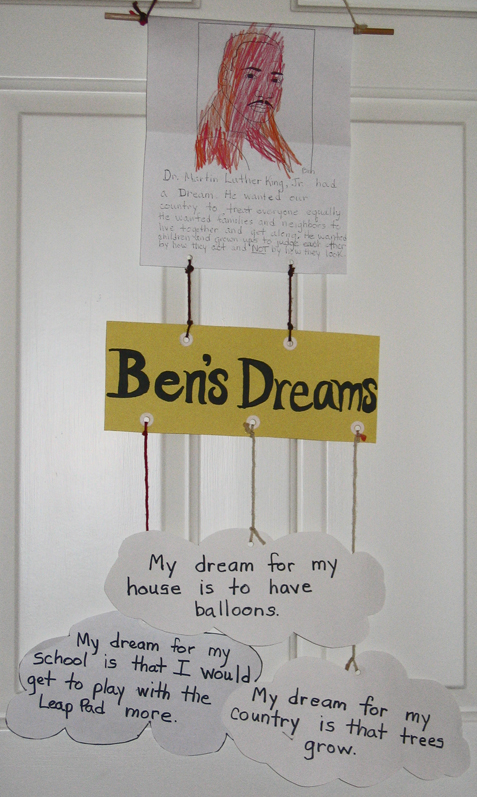 Ben
Dr. Martin Luther King, Jr. had
a Dream. He wanted our
country to treat everyone equally.
He wanted families and neighbors to
live together and get along. He wanted
children and grown ups to judge each other
by how they act and NOT by how they look
Ben's Dreams
My dream for my
house is to have
balloons.
My dream for my
school is that I would
get to play with the
Leap Pad more.
My dream for my
country is that trees
grow.